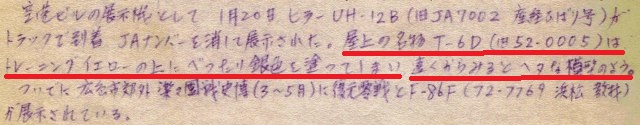 空港ビルの展示機として 1月20日 ヒラー UH-12B (旧JA7002 産経ひばり号) が
トラックで到着 JAナンバーを消して展示された。屋上の名物 T-6D (旧52-0005) は
トレーニングイエローの上にべったり銀色を塗ってしまい 遠くからみるとヘタな模型のよう。
ついでに 広島市郊外 (3〜5月)に復元零戦とF-86F (72-7769 浜松
が展示されている。